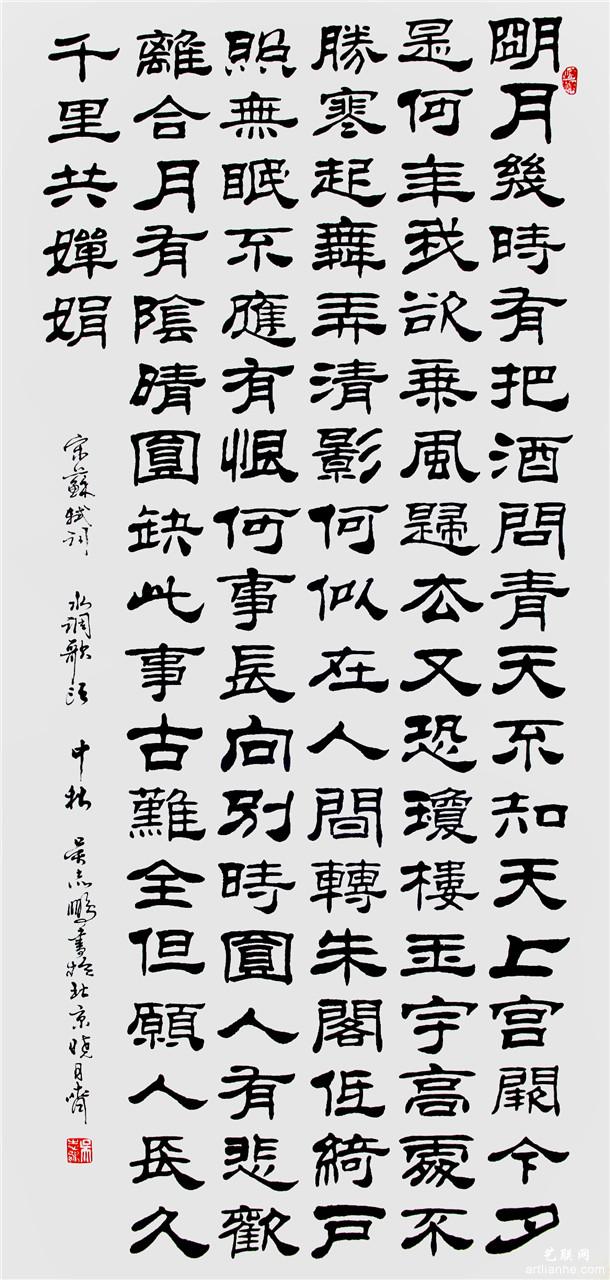 朙月幾時有把酒問青天不知天上宮闕今夕
是何年我欲乘風歸去又恐瓊樓玉宇高處不
勝寒起舞弄清影何似在人間轉朱閣低綺戶
照無眠不應有恨何事長向別時圓人有悲歡
離合月有陰晴圓缺此事古難全但願人長久
千里共嬋娟
宋蘇軾詞 水调歌頭 中秋 吴志鵬書於北京曉月齋
艺联网
artlianhe.com